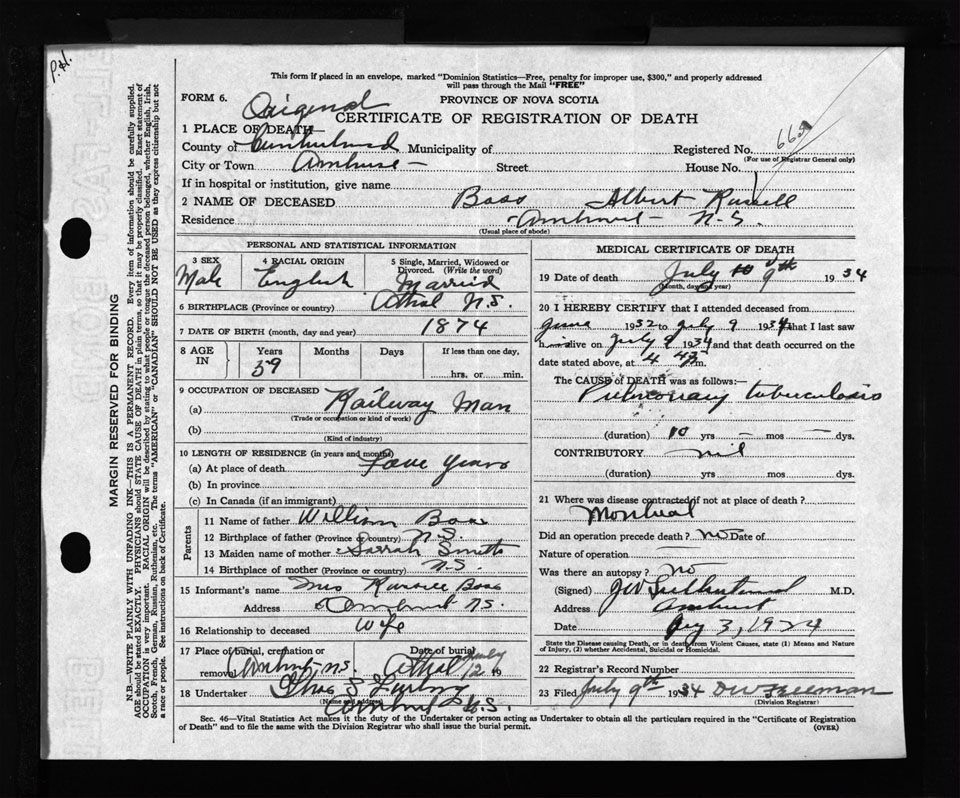 P.H.
This form if placed in an envelope, marked "Dominion Statistics—Free, penalty for improper use, $300," and properly addressed
will pass through the Mail "FREE"
FORM 6.
Original
PROVINCE OF NOVA SCOTIA
CERTIFICATE OF REGISTRATION OF DEATH
1 PLACE OF DEATH—
County of Cumberland Municipality of
Registered No.
(For use of Registrar General only)
City or Town Amherst Street House No.
If in hospital or institution, give name
2 NAME OF DECEASED Boss Albert Russell
Residence Amherst N.S.
(Usual place of abode)
PERSONAL AND STATISTICAL INFORMATION
3 SEX
Male
4 RACIAL ORIGIN
English
5 Single, Married, Widowed or
Divorced. (Write the word)
Married
6 BIRTHPLACE (Province or country) Athol N.S.
7 DATE OF BIRTH (month, day and year) 1874
8 AGE IN
Years Months Days If less than one day,
59 hrs. or min.
9 OCCUPATION OF DECEASED
(a) Railway Man
(Trade or occupation or kind of work)
(b)
(Kind of industry)
10 LENGTH OF RESIDENCE (in years and months)
(a) At place of death years
(b) In province
(c) In Canada (if an immigrant)
Parents
11 Name of father William Boss
12 Birthplace of father (Province or country) N.S.
13 Maiden name of mother Sarrah Smith
14 Birthplace of mother (Province or country) N.S.
15 Informant's name Mrs Russell Boss
Address Amherst N.S.
16 Relationship to deceased Wife
17 Place of burial, cremation or Date of burial
removal Amherst N.S. Athol July 12 19
18 Undertaker
(Name and address)
Amherst N.S.
MEDICAL CERTIFICATE OF DEATH
19 Date of death July 10 9th 1934
(Month, day and year)
20 I HEREBY CERTIFY that I attended deceased from
June 1932 to July 9 1934 that I last saw
h alive on July 9 1934 and that death occurred on the
date stated above, at 4 m.
The CAUSE of DEATH was as follows:—
Pulmonary tuberculosis
(duration) 10 yrs — mos — dys.
CONTRIBUTORY nil
(duration) yrs mos dys.
21 Where was disease contracted if not at place of death?
Montreal
Did an operation precede death? no Date of
Nature of operation
Was there an autopsy? no
(Signed) M.D.
Address Amherst
Date 3, 1924
State the Disease causing Death, or in death from Violent Causes, state (1) Means and Nature
of Injury, (2) whether Accidental, Suicidal or Homicidal.
22 Registrar's Record Number
23 Filed July 9th 1934 DW Freeman
(Division Registrar)
Sec. 46—Vital Statistics Act makes it the duty of the Undertaker or person acting as Undertaker to obtain all the particulars required in the "Certificate of Registration
of Death" and to file the same with the Division Registrar who shall issue the burial permit. (OVER)
MARGIN RESERVED FOR BINDING
N.B.—WRITE PLAINLY WITH UNFADING INK—THIS IS A PERMANENT RECORD. Every item of information should be carefully supplied.
AGE should be stated EXACTLY. PHYSICIANS should STATE CAUSE OF DEATH in plain terms, so that it may be properly classified. Exact statement of
OCCUPATION is very important. RACIAL ORIGIN will be described by stating to what people or tongue the deceased person belonged, whether English, Irish,
Scotch, French, German, Russian, Ruthenian, etc. The terms "AMERICAN" or "CANADIAN" SHOULD NOT BE USED as they express citizenship but not
a race or people. See instructions on back of Certificate.